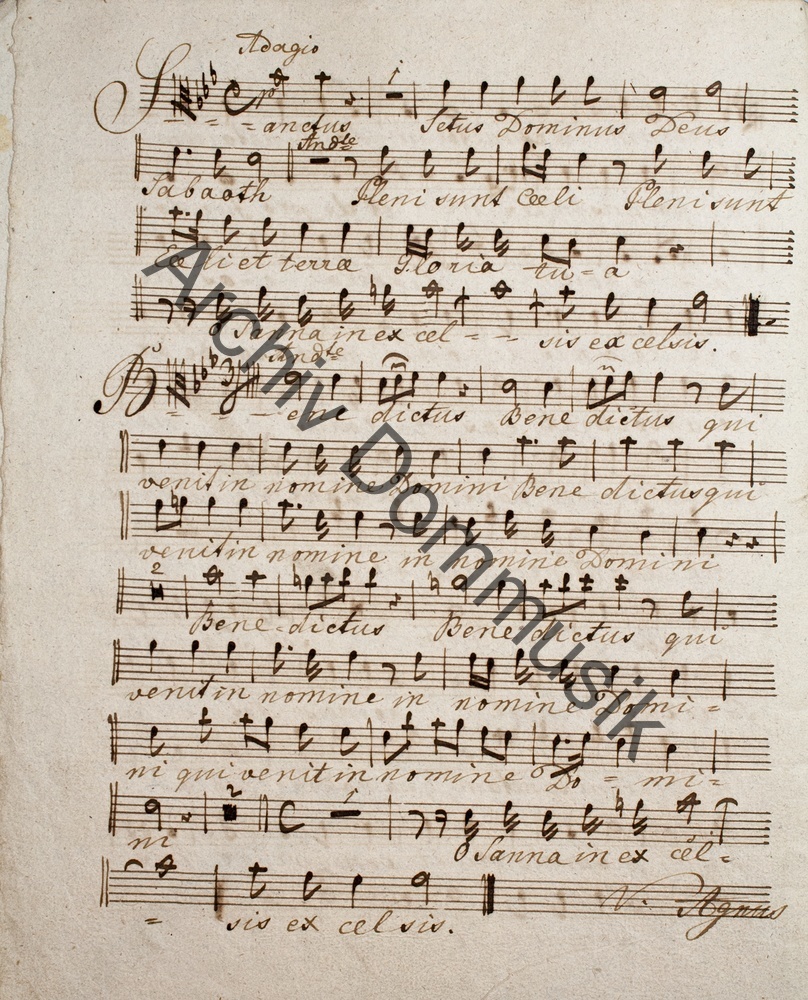 Adagio
S - - - anctus Sctus Dominus Deus
Andte
Sabaoth Pleni sunt Cœli Pleni sunt
Cœli et terræ Gloria tu = a
O Sanna in ex cel = - - sis ex celsis.
Andte
B - - - ene dictus Bene dictus qui
venit in nomine Domini Bene dictus qui
venit in nomine in nomine Domini
2
Bene-dictus Bene dictus qui
venit in nomine in nomine Domi =
ni qui venit in nomine Do = mi =
2 1
ni O Sanna in ex cel =
= sis ex celsis. V. Agnus
Archiv Dommusik